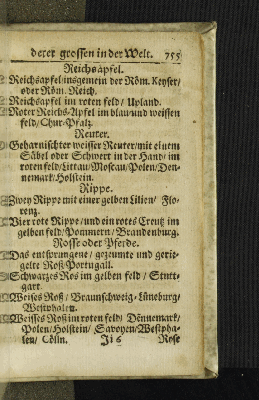 derer grossen in der Welt. 755
Reichsapfel.
Reichsapfel insgemein der Röm. Keyser/
oder Röm. Reich.
Reichsapfel im roten feld/ Upland.
Roter Reichs-Apfel im blau und weissen
feld/ Chur-Pfalz.
Reuter.
Geharnischter weisser Reuter/ mit einem
Säbel oder Schwert in der Hand/ im
roten feld/ Littau/ Moscau/ Polen/ Den-
nemark/ Holstein.
Rippe.
Zwey Rippe mit einer gelben Lilien/ Flo-
renz.
Vier rote Rippe/ und ein rotes Creutz im
gelben feld/ Pommern/ Brandenburg.
Rosse oder Pferde.
Das entsprungene/ gezeumte und gerit-
gelte Roß/ Portugall.
Schwarzes Ros im gelben feld/ Stutt-
gart.
Weises Roß/ Braunschweig-Lüneburg/
Westphalen.
Weisses Roß im roten feld/ Dennemark/
Polen/ Holstein/ Savoyen/ Westpha-
len/ Cölln. Ii 6 Rose